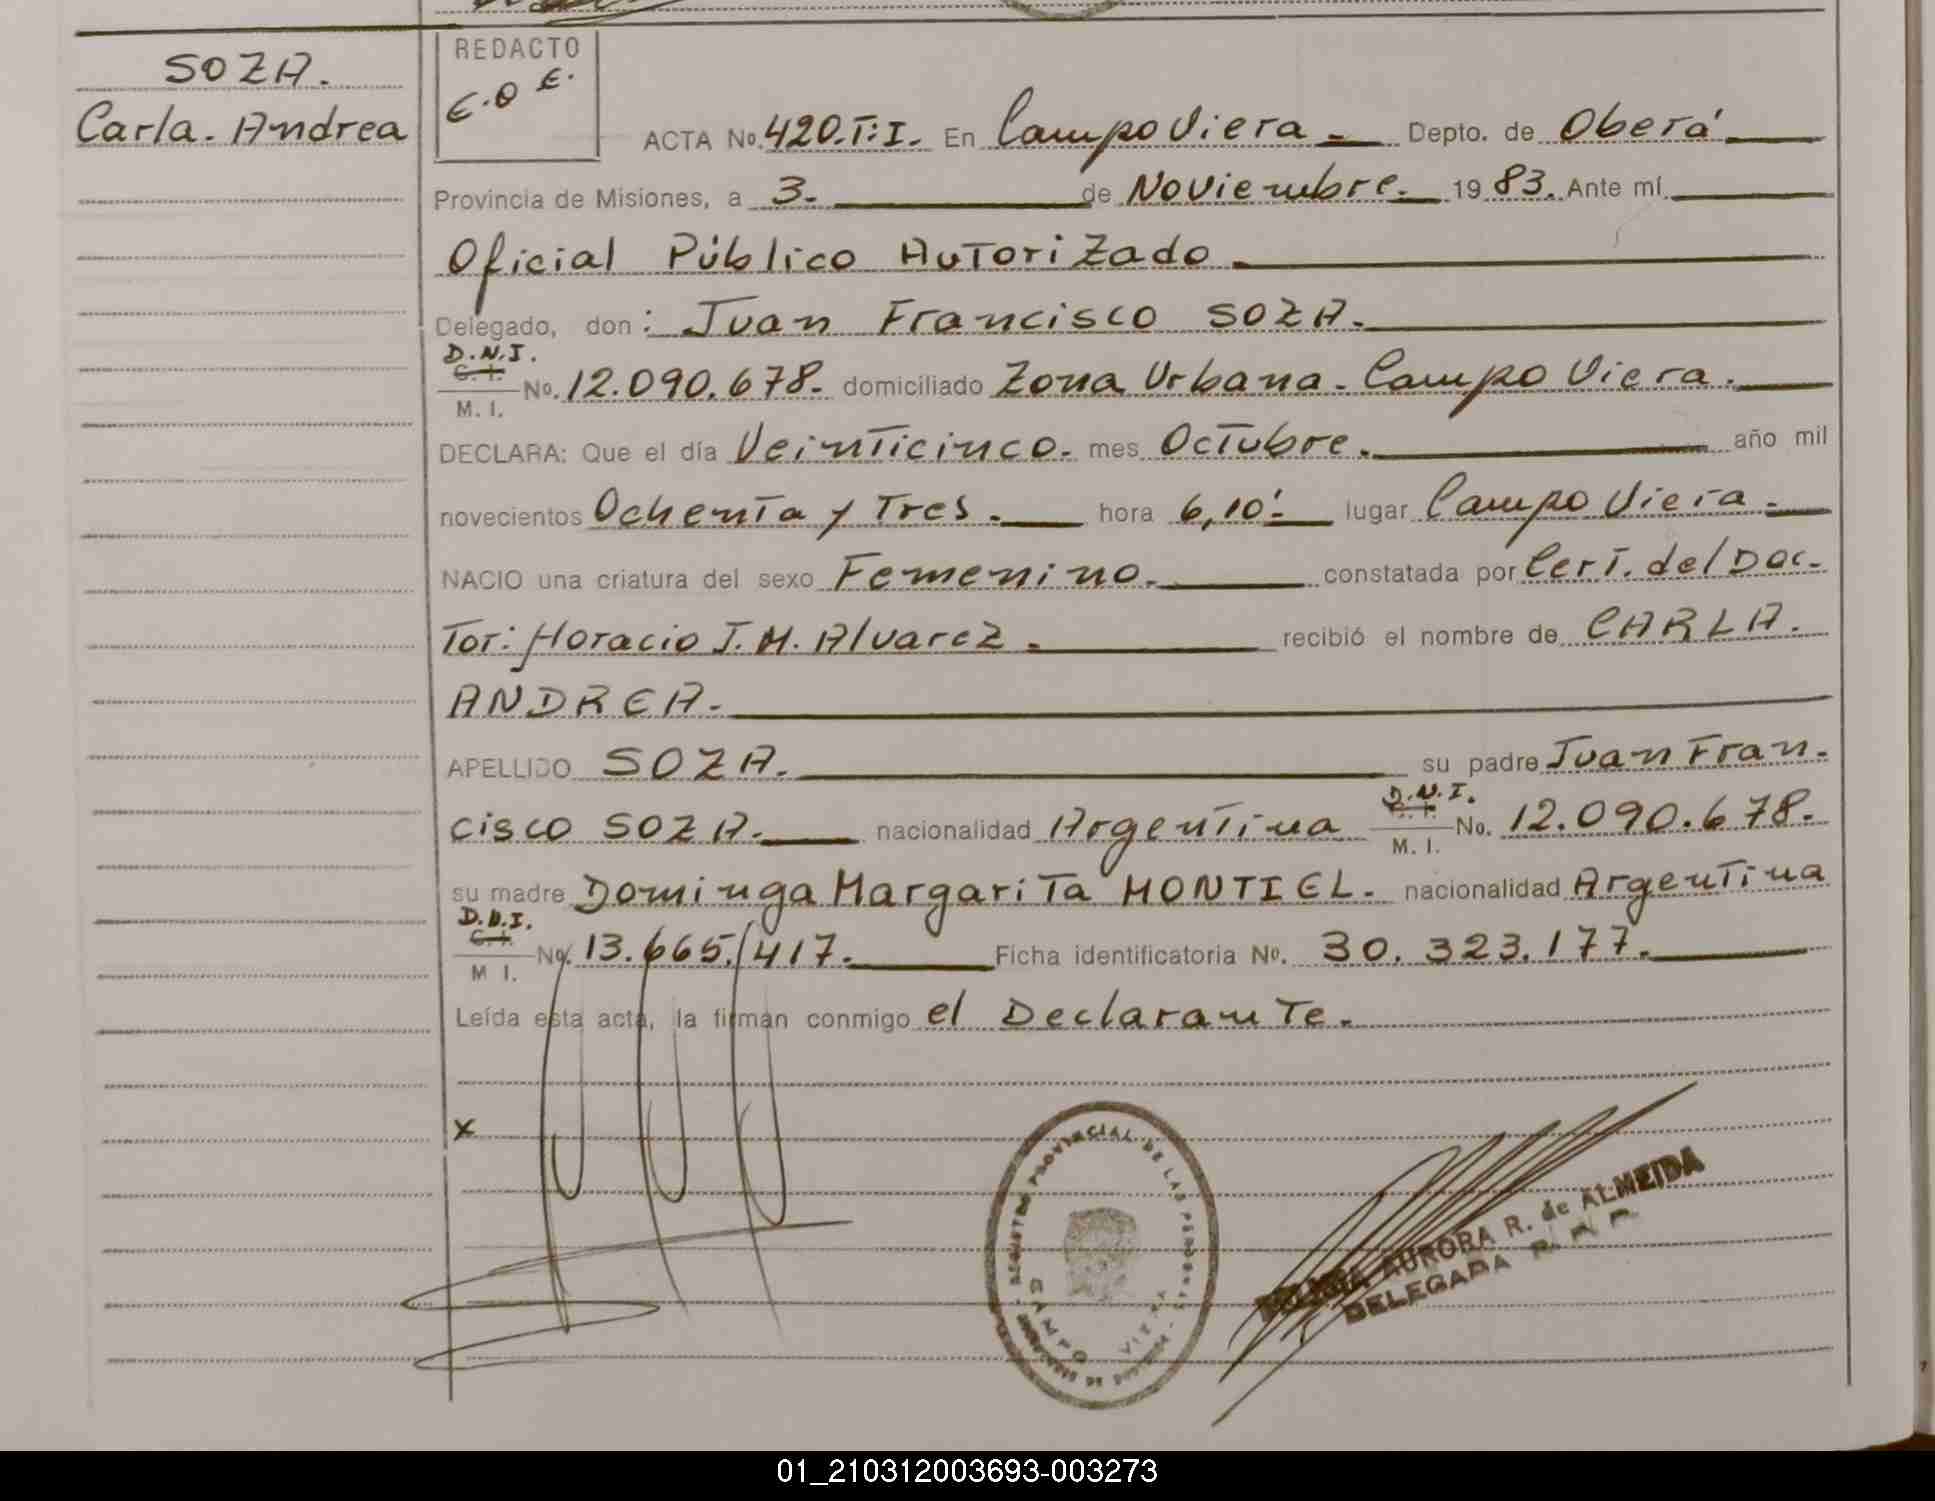 SOZA.
Carla. Andrea
REDACTO
E.O E.
ACTA No. 420.T:I. En Campo Viera Depto. de Oberá
Provincia de Misiones, a 3. de Noviembre. 1983. Ante mí
Oficial Público Autorizado
Delegado, don: Juan Francisco SOZA.
D.N.I.
C. I.
M. I. No. 12.090.678. domiciliado Zona Urbana. Campo Viera.
DECLARA: Que el día Veinticinco. mes Octubre. año mil
novecientos Ochenta y Tres. hora 6,10' lugar Campo Viera.
NACIO una criatura del sexo Femenino. constatada por Cert. del Doc-
tor: Horacio J. M. Alvarez. recibió el nombre de CARLA.
ANDREA.
APELLIDO SOZA. su padre Juan Fran-
D.N.I.
cisco SOZA. nacionalidad Argentina C. I. M. I. No. 12.090.678.
su madre Dominga Margarita MONTIEL. nacionalidad Argentina
D.N.I.
C. I.
M I. No. 13.665.417. Ficha identificatoria No. 30.323.177.
Leída esta acta, la firman conmigo el Declarante.
x
REGISTRO PROVINCIAL DE LAS PERSONAS
CAMPO VIERA
AURORA R. de ALMEIDA
DELEGADA R. P. P.
01_210312003693-003273